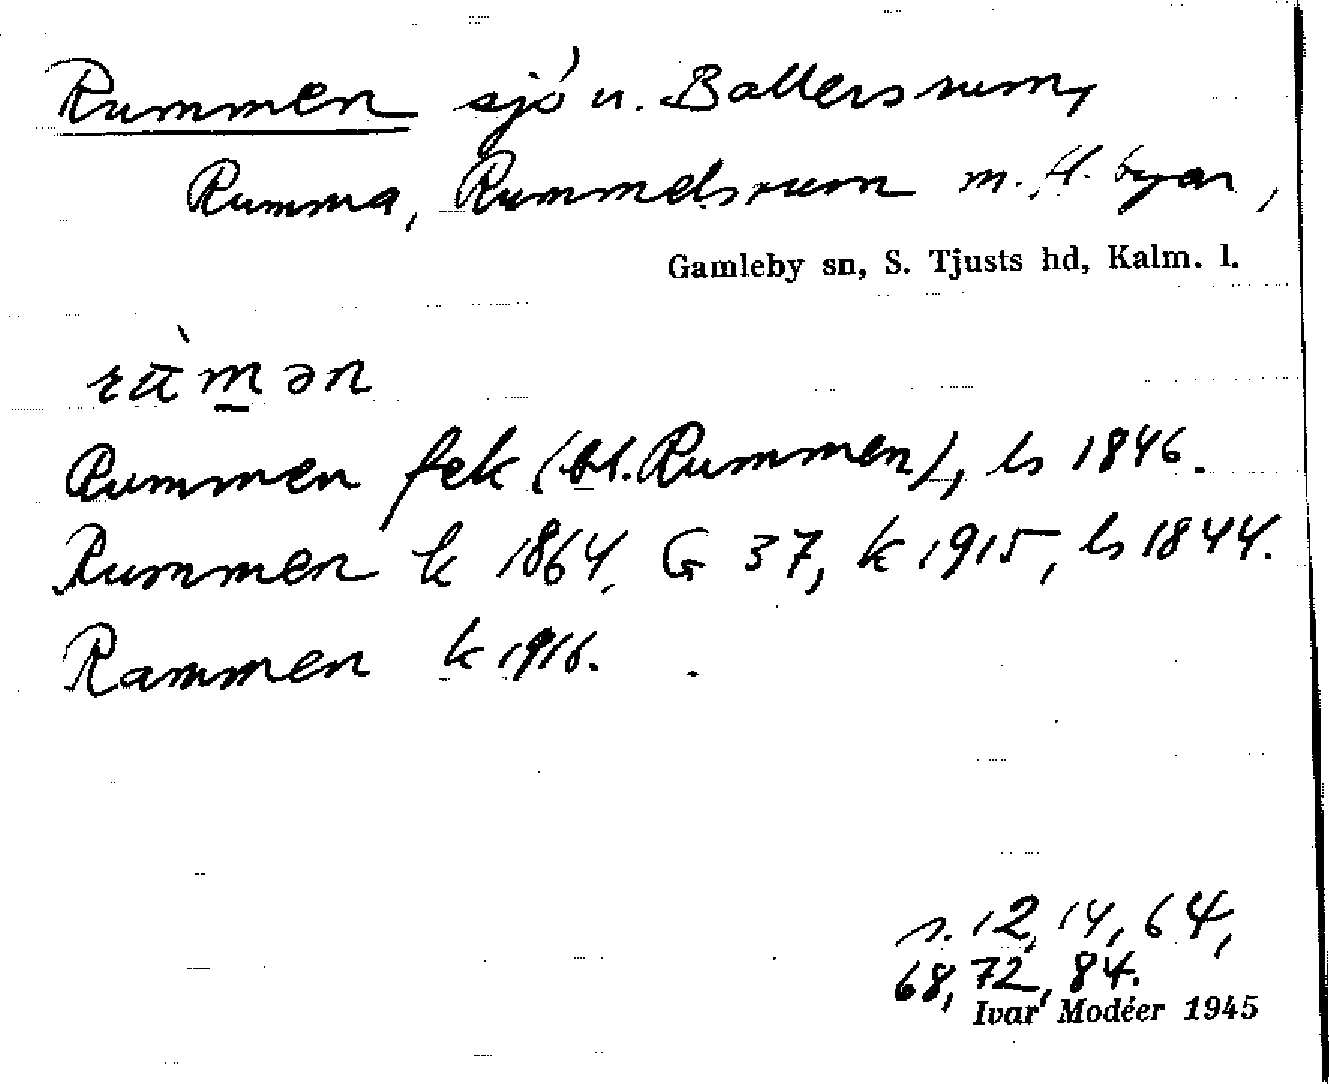 Rummen sjö u. Ballersrum,
Rumma, Rummelsrum m. fl. byar,
Gamleby sn, S. Tjusts hd, Kalm. l.
Rummen fek (bl. Rummen), ls 1846.
Rummen k 1864, G 37, k 1915, ls 1844.
Rammen k 1916.
s. 12, 14, 64,
68, 72, 84.
Ivar Modéer 1945